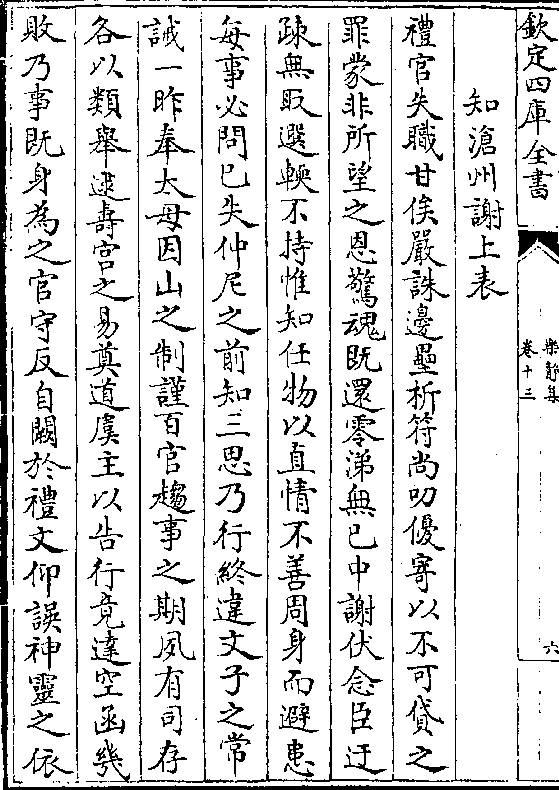 欽定四庫全書
樂靜集
卷十三
六
知滄州謝上表
禮官失職甘俟嚴誅邊壘析符尚叨優寄以不可貸之
罪蒙非所望之恩驚魂既還零涕無已中謝伏念臣迂
疎無取選輭不持惟知任物以直情不善周身而避患
每事必問已失仲尼之前知三思乃行終違文子之常
誡一昨奉太母因山之制謹百官趨事之期夙有司存
各以類舉逮壽宮之易奠道虞主以告行竟達空函幾
敗乃事既身為之官守反自闕於禮文仰誤神靈之依